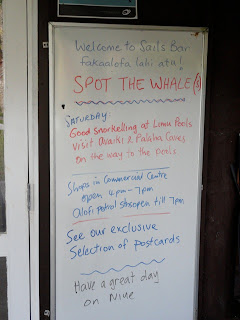 Welcome to Sails Bar
fakaalofa lahi atu!
SPOT THE WHALE(S)
SATURDAY
Good snorkelling at Limu Pools
Visit Avaiki & Palaha Caves
on the way to the Pools
Shops in Commercial Centre
open 4pm - 7pm
Alofi petrol stn open till 7pm
See our exclusive
Selection of postcards
Have a great day
on Niue